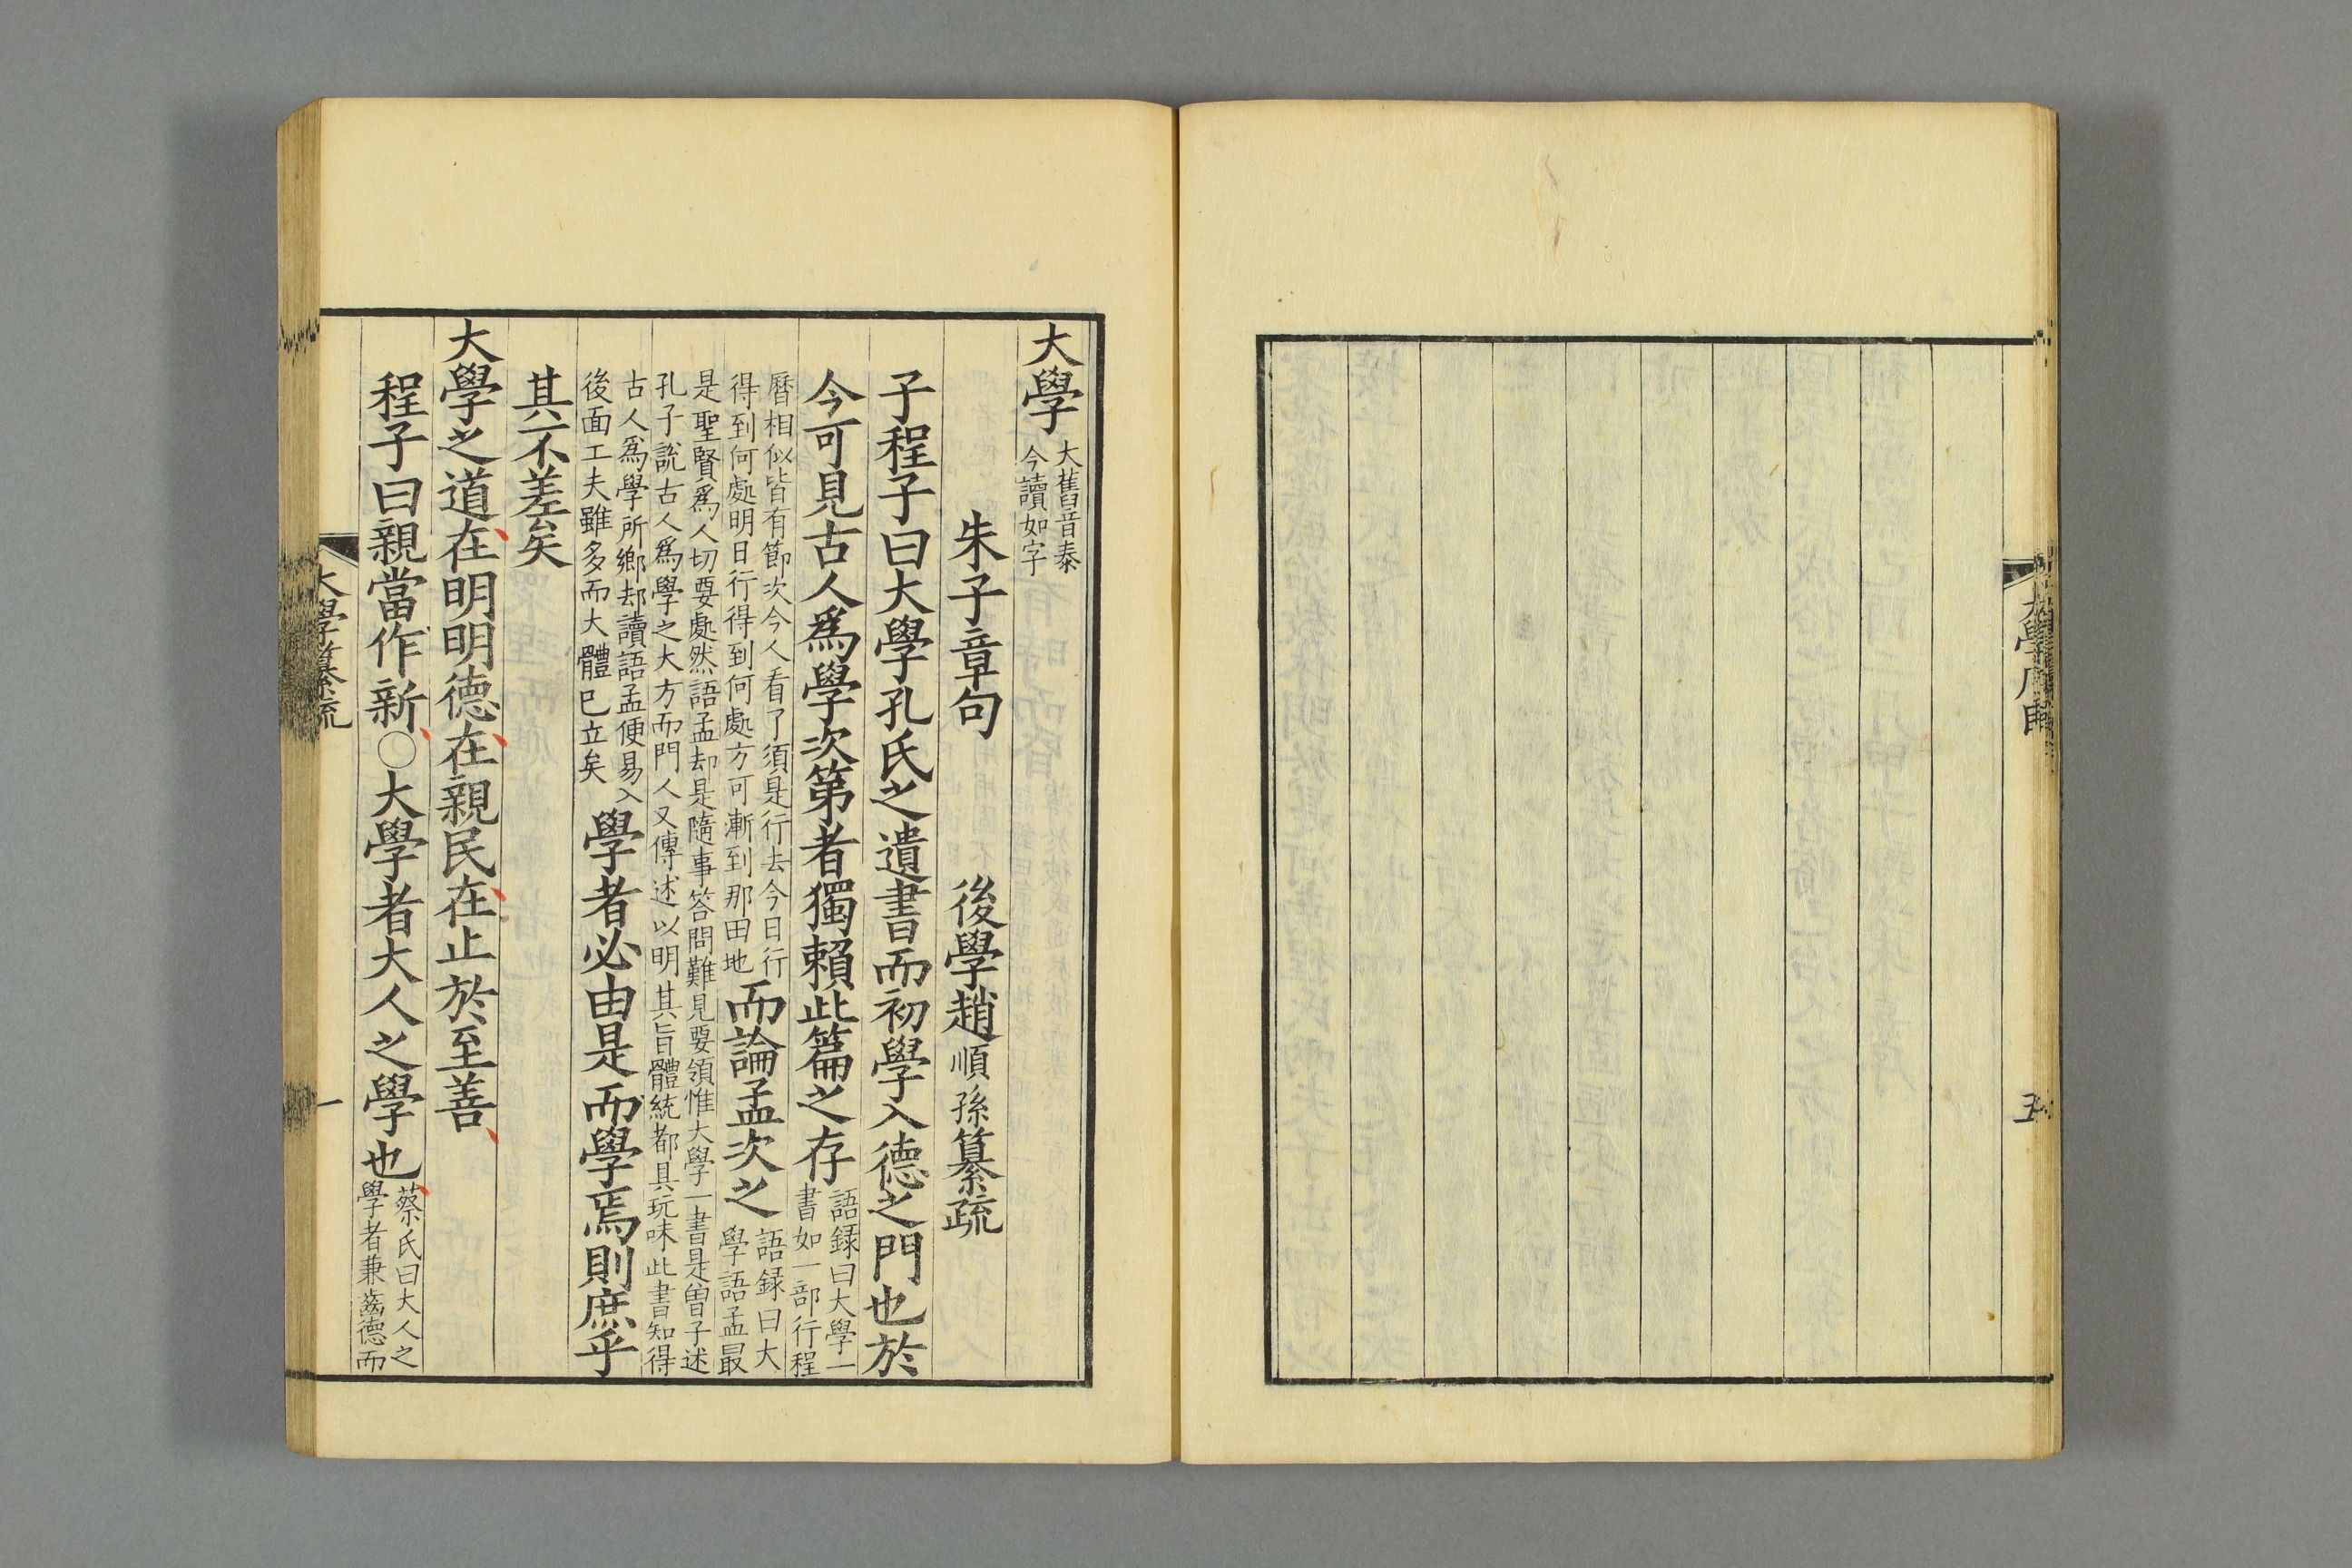 大學序
五
大學大舊音泰今讀如字
朱子章句 後學趙順孫纂疏
子程子曰大學孔氏之遺書而初學入德之門也於
今可見古人爲學次第者獨賴此篇之存語録曰大學一書如一部行程
曆相似皆有節次今人看了須是行去今日行得到何處明日行得到何處方可漸到那田地而論孟次之語録曰大學語孟最
是聖賢爲人切要處然語孟却是隨事答問難見要領惟大學一書是曾子述孔子說古人爲學之大方而門人又傳述以明其旨體統都具玩味此書知得
古人爲學所鄉却讀語孟便易入後面工夫雖多而大體已立矣學者必由是而學焉則庶乎
其不差矣
大學之道在明明德在親民在止於至善
程子曰親當作新○大學者大人之學也蔡氏曰大人之學者兼齒德而
大學纂疏
一